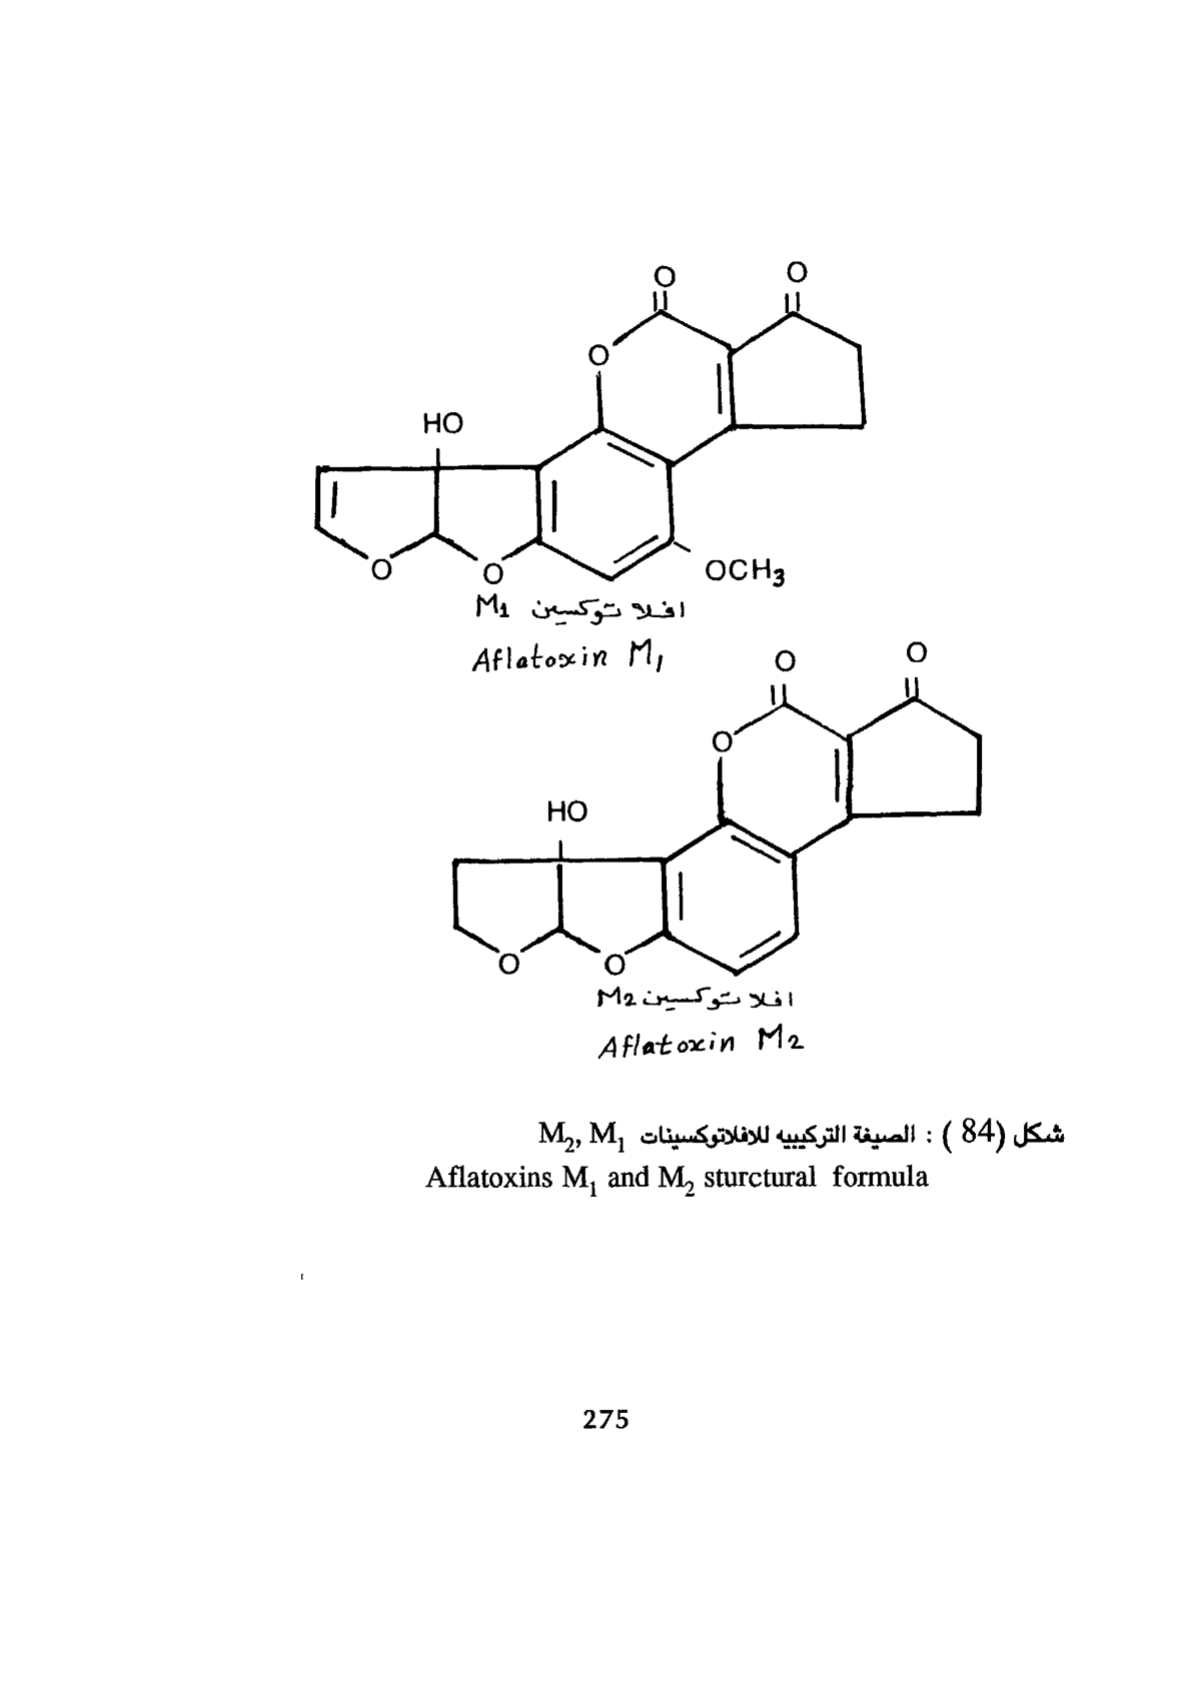 O O
O
HO
O O OCH3
افلاتوكسين M1
Aflatoxin M1
O O
O
HO
O O
افلاتوكسين M2
Aflatoxin M2
شكل (84 ) : الصيغة التركيبيه للافلاتوكسينات M2, M1
Aflatoxins M1 and M2 sturctural formula
275